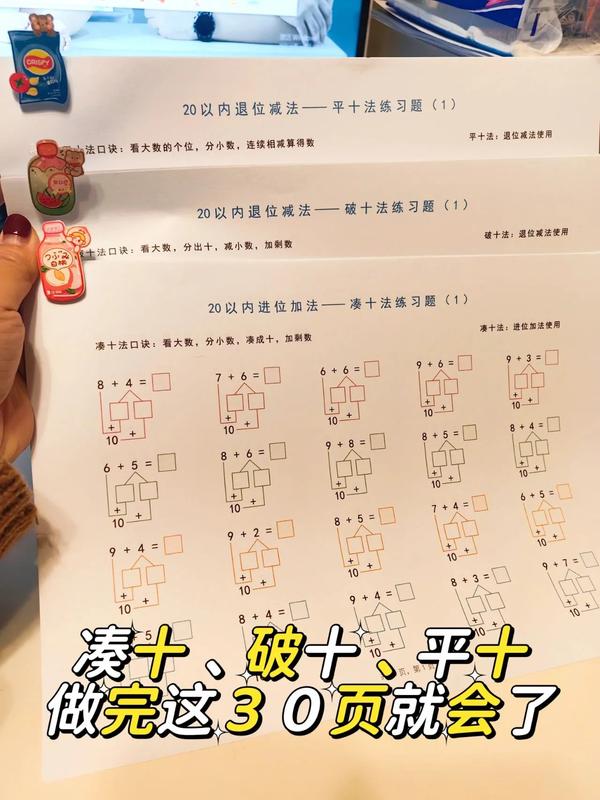 CRISPY
20以内退位减法——平十法练习题（1）
法口诀：看大数的个位，分小数，连续相减算得数
平十法：退位减法使用
20以内退位减法——破十法练习题（1）
十法口诀：看大数，分出十，减小数，加剩数
破十法：退位减法使用
20以内进位加法——凑十法练习题（1）
凑十法口诀：看大数，分小数，凑成十，加剩数
凑十法：进位加法使用
8 + 4 = 7 + 6 = 6 + 6 = 9 + 6 = 9 + 3 =
+ + + + +
10 + 10 + 10 + 10 + 10 +
6 + 5 = 8 + 6 = 9 + 8 = 8 + 5 = 8 + 4 =
+ + + + +
10 + 10 + 10 + 10 + 10 +
9 + 4 = 9 + 2 = 8 + 5 = 7 + 4 = 6 + 5 =
+ + + + +
10 + 10 + 10 + 10 + 10 +
5 = 8 + 4 = 9 + 4 = 8 + 3 = 9 + 7 =
凑十、破十、平十
做完这30页就会了